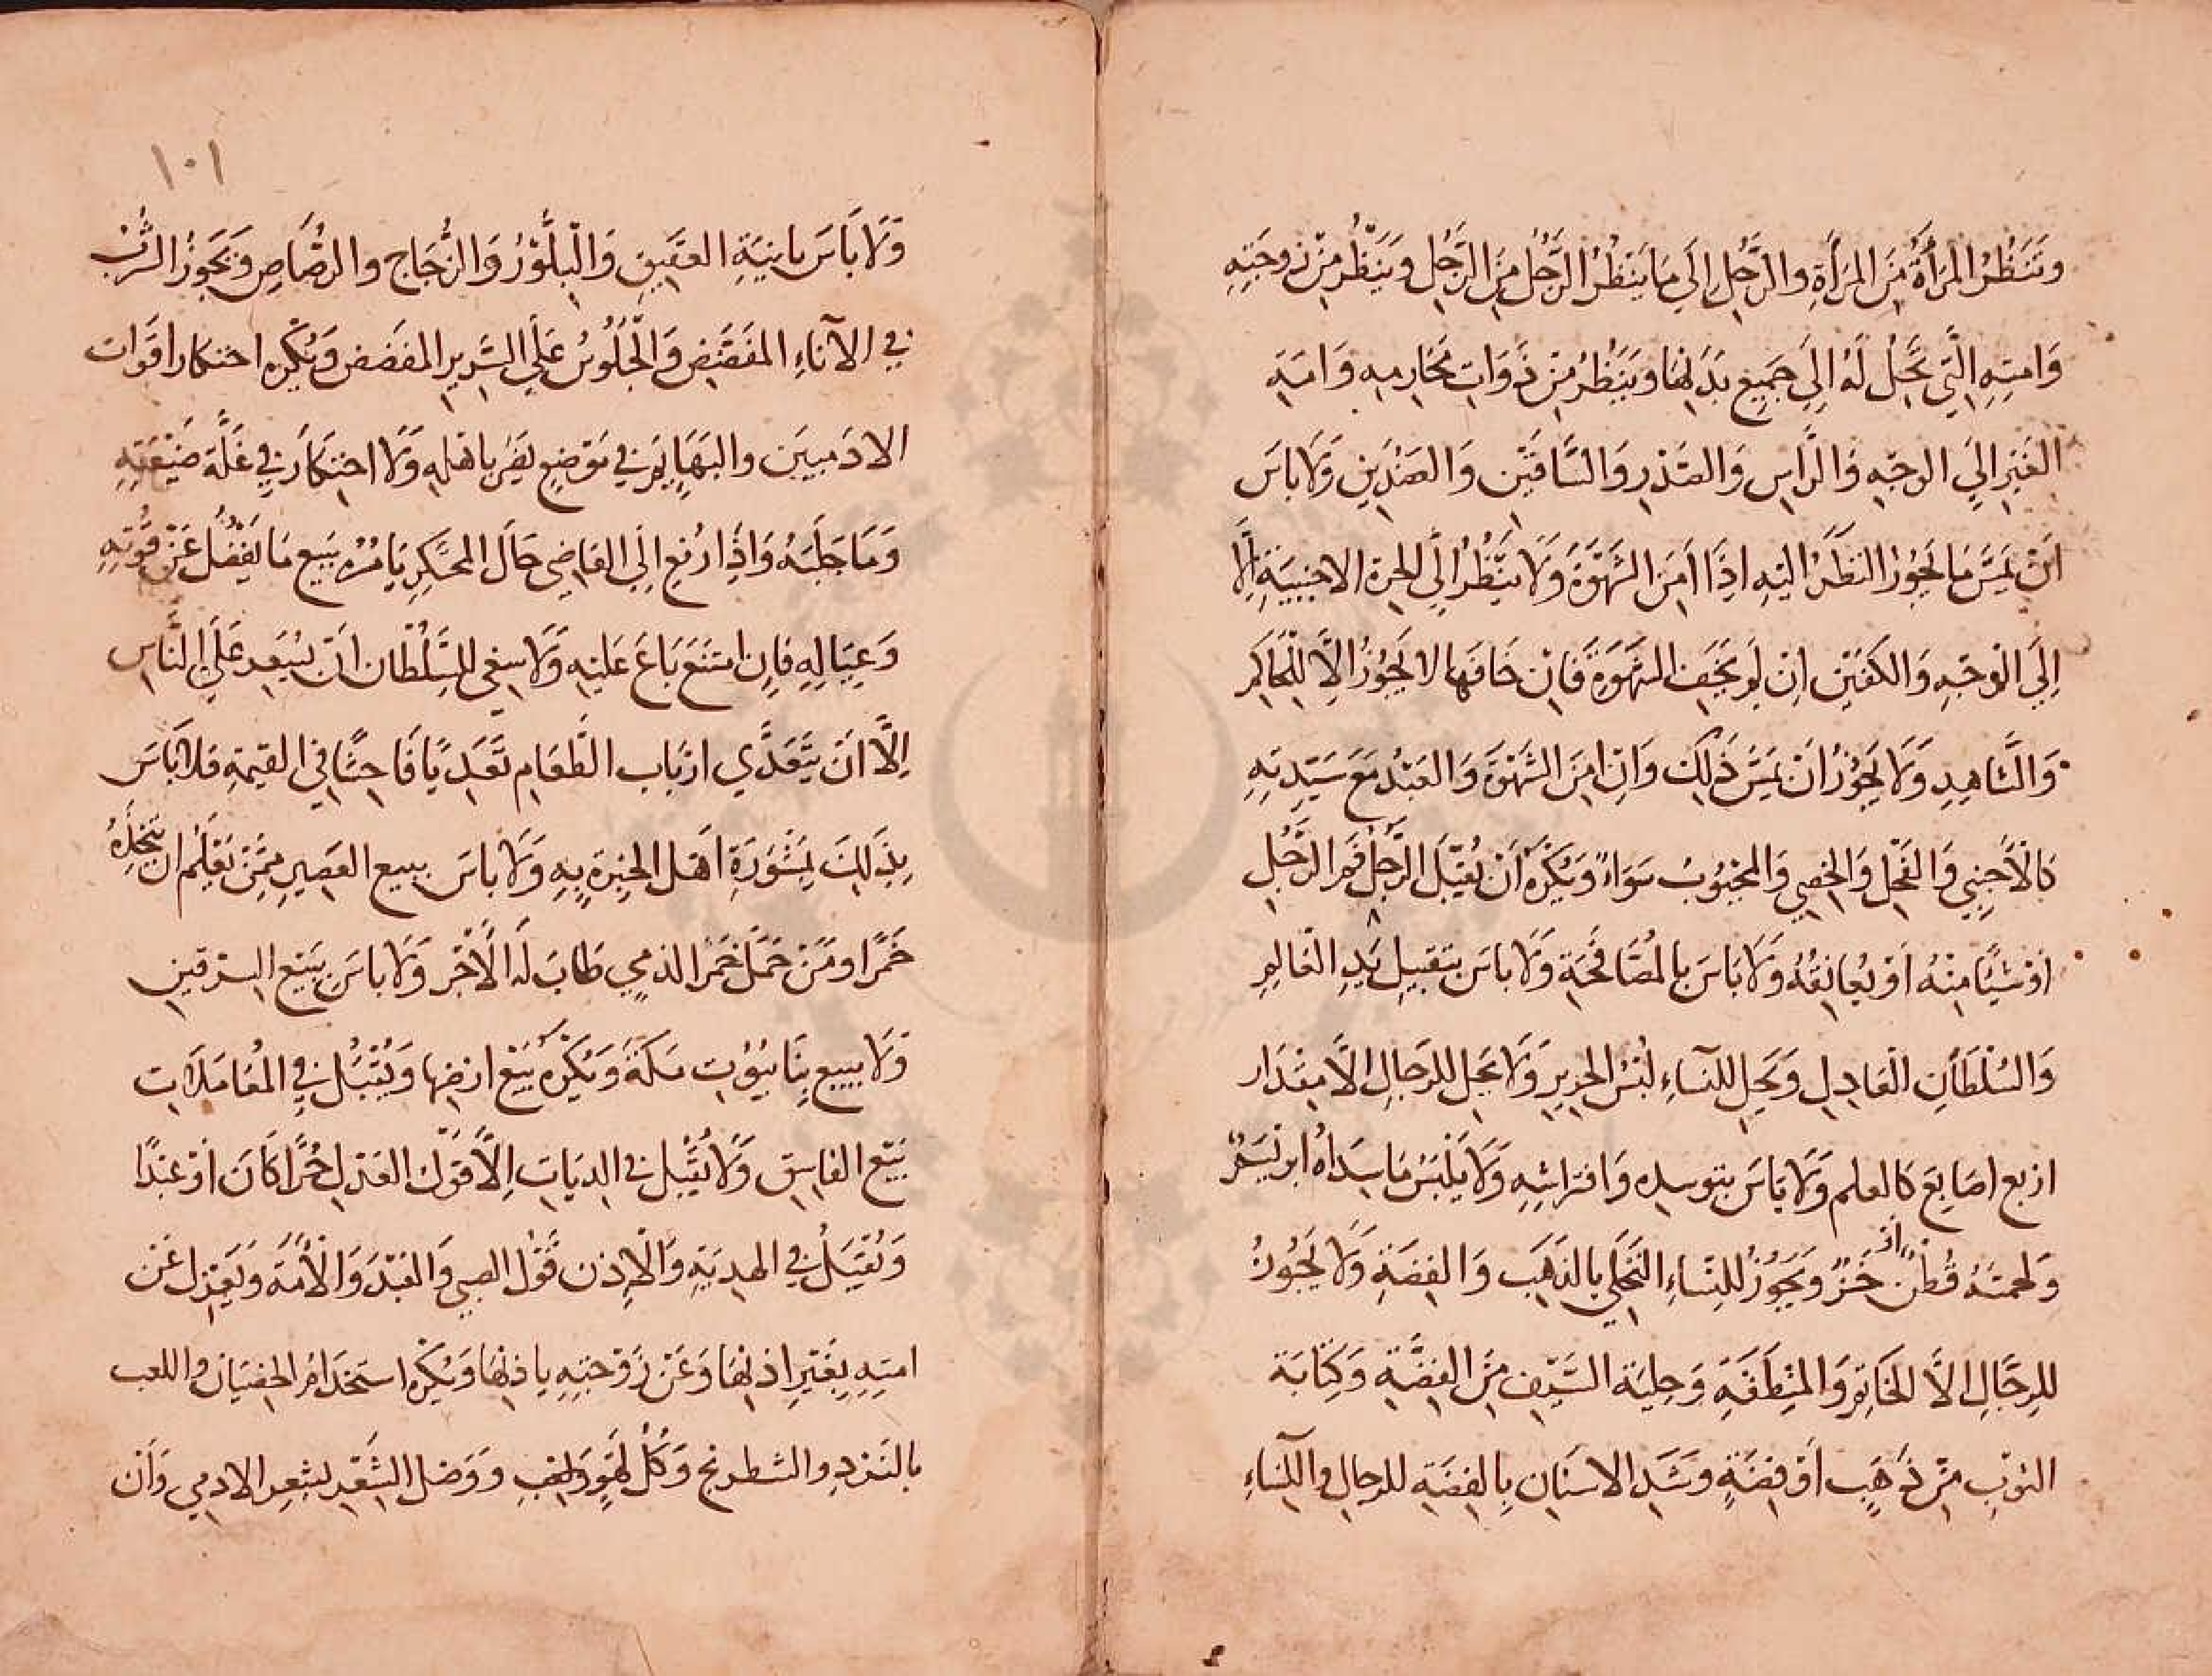 وَتَنْظُرُ المَرْأَةُ مِنَ المَرْأَةِ والرَّجُلِ إلَى مَا يَنْظُرُ الرَّجُلُ مِنَ الرَّجُلِ وَيَنْظُرُ مِنْ زوجَتِهِ
وَامَتِهِ الَّتِي تَحِلُّ لَهُ إلَى جَمِيعِ بَدَنِهَا وَيَنْظُرُ مِنْ ذَوَاتِ مَحَارِمِهِ وَامَةِ
الغَيْرِ إلَى الوجْهِ وَالرَّاسِ وَالصَّدْرِ وَالسَّاقَيْنِ وَالعَضُدَيْنِ وَلَا بَاسَ
اَنْ يَمَسَّ مَا يَجُوزُ النظَرُ اليْهِ اذَا اَمِنَ الشَّهْوَةَ وَلَا يَنْظُرُ إلَى الحرة الاجنبيَةِ الَّا
إلَى الْوَجْهِ وَالكفيْنِ اِنْ لَمْ يَخَفِ الشَهْوَةَ فَاِنْ خَافَهَا لا يَجُوزُ الَّا لِلْحَاكِمِ
وَالشَّاهِدِ وَلَا يَجُوْزُ اَنْ يَمَسَّ ذَلِكَ وَاِنْ اَمِنَ الشَهْوَةَ وَالعَبْدُ مَعَ سَيِّدَتِهِ
كَالْأَجْنَبِي وَالفَحْلُ وَالخَصِي وَالمَجْبُوبُ سَوَاءٌ وَيُكْرَهُ اَنْ يُقَبِّلَ الرَّجُلُ فَمَ الرَّجُلِ
اَوْ شَيْئًا مِنْهُ اَوْ يُعَانِقَهُ وَلَا بَاسَ بِالْمُصَافَحَةِ وَلَا بَاسَ بِتَقبيلِ يَدِ الْعَالِمِ
وَالسُلْطَانِ الْعَادِلِ وَيَحِلُّ للنسَاءِ لُبْسُ الحَرِيرِ وَلَا يَحِلُّ لِلرجَالِ الَّا مِقْدَار
ارْبَعِ اصَابِعَ كَالعلم وَلَا بَاسَ بتوسده وَافتراشِهِ وَلَا يَلْبَسُ مَا سَدَاهُ ابريْسَمٌ
وَلحمتهُ قُطْنٌ اَوْ خَزٌّ وَيَجُوْزُ لِلنِسَاءِ التَحَلِّي بِالذَهَبِ وَالفِضَةِ وَلَا يَجُوزُ
لِلرِجَالِ الَّا الخَاتم وَالمِنْطَقَة وَحِلية السَيْفِ مِنَ الفِضَّةِ وَكِتَابَة
الثوْبِ مِنْ ذَهَبٍ اَوْ فِضَةٍ وَشَدّ الاسنَانِ بِالفِضَةِ للرجالِ وَالنسَاءِ
١٠١
وَلَا بَاسَ بانِيَةِ العَقِيقِ وَالْبِلَّوْرِ وَالزُّجَاجِ والرَّصَاصِ وَيَجُوزُ الشُّرْبُ
في الآناءِ المفَضَّضِ وَالْجُلُوسُ عَلَى السَّرِيرِ المفَضض وَيُكْرَه احتكار اقوَات
الادَمِيينَ والبَهَايِمِ في مَوْضِعٍ يَضُرُّ باهْلِهِ وَلَا احْتِكَارَ فِي غَلَّةِ ضَيْعَتِهِ
وَمَا جَلَبَهُ وَاِذَا رُفِعَ اِلَى القاضِى حَالُ المحتَكِرِ يَامُرُهُ بِبَيع مَا يَفْضُلُ عَنْ قُوتِهِ
وَعِيَالِهِ فَاِنِ امتَنَعَ بَاعَ عَليْهِ وَلَا ينبغى للسُّلْطَان اَنْ يُسَعِّرَ عَلَى النَّاسِ
اِلَّا اَنْ يَتَعَدَّي اربَاب الطعَام تَعَدِّيًا فَاحِشًا في القيمَةِ فَلَا بَاسَ
بِذَلِكَ بِمَشُوْرَةِ اَهْلِ الخِبرَةِ بِهِ وَلَا باسَ ببيع العَصِيرِ مِمَّنْ يَعْلَم انْ يَتَّخِذَهُ
خَمْرًا ومَنْ حَمَلَ خَمْرَ الذمِي طَابَ لَه الْأَجْر وَلَا باسَ بِبَيْعِ السرْقينِ
وَلَا ببيع بِنَا بُيُوتِ مَكَةَ وَيُكْرَه بَيْعُ ارْضِهَا وَيُقْبَلُ فِي الْمُعَامَلَات
بَيْع الفاسِقِ وَلَا يُقْبَل في الديَانَاتِ اِلَّا قَوْلُ العَدْلِ حُرًّا كَانَ اوْ عَبْدًا
وَيُقْبَلُ في الهدِيَةِ وَالْاِذنِ قَوْلُ الصبِي وَالعَبْدِ وَالْأَمَةِ وَيَعْزِل عَنْ
امتِهِ بِغَيْرِ اذنِهَا وَعَنْ زَوْجَتِهِ باِذنِهَا وَيُكْرَه استِخدَامُ الخصْيَان واللعب
بالنَرْدِ والشطرنج وَكُلُّ لَهْوٍ وَلَعِبٍ وَوَصْل الشَعْرِ بشعِر الادمي وَأَن